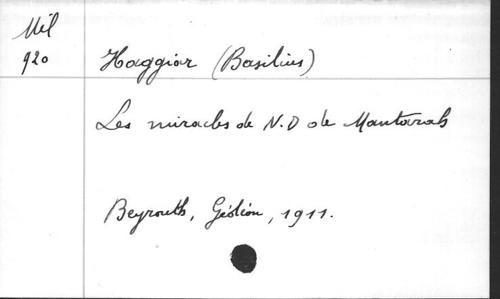 Mil
920
Haggiar (Basilius)
Les miracles de N.D de Mantarah
Beyrouth, Gédéon, 1911.